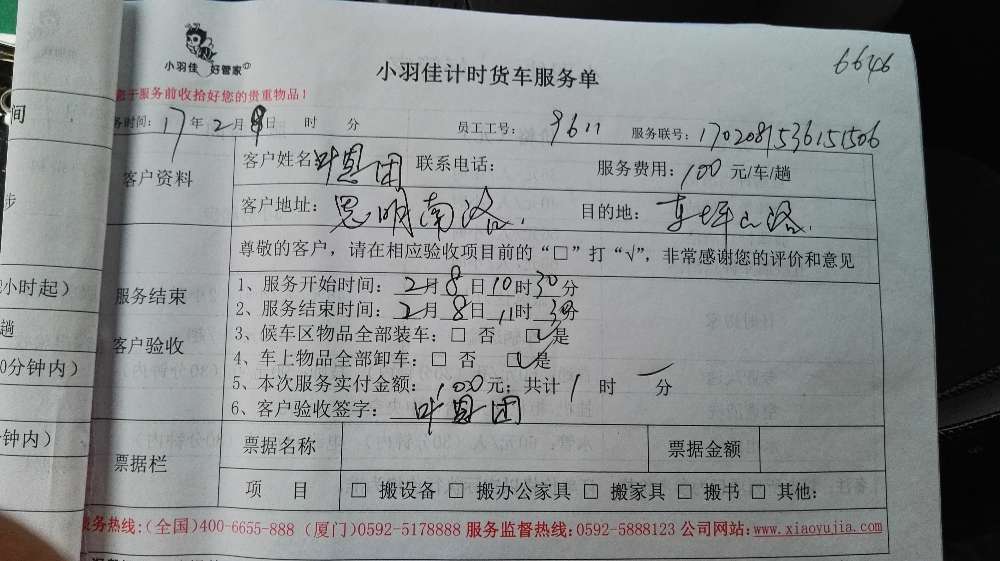 小羽佳 好管家
小羽佳计时货车服务单
6646
您于服务前收拾好您的贵重物品！
务时间：17年2月8日 时 分 员工工号：9611 服务联号：1702081536151506
客户资料
客户姓名 叶恩团 联系电话： 服务费用：100元/车/趟
客户地址：思明南路. 目的地：
尊敬的客户，请在相应验收项目前的“□”打“√”，非常感谢您的评价和意见
间
步
小时起）
趟
0分钟内）
分钟内）
服务结束
客户验收
1、服务开始时间：2月8日10时30分
2、服务结束时间：2月8日11时30分
3、候车区物品全部装车：□ 否 ☑是
4、车上物品全部卸车：□ 否 ☑是
5、本次服务实付金额：100元；共计1时 分
6、客户验收签字：叶恩团
票据栏
票据名称 票据金额
项 目 □ 搬设备 □ 搬办公家具 □ 搬家具 □ 搬书 □ 其他：
服务热线:(全国)400-6655-888 (厦门)0592-5178888 服务监督热线:0592-5888123 公司网站:www.xiaoyujia.com